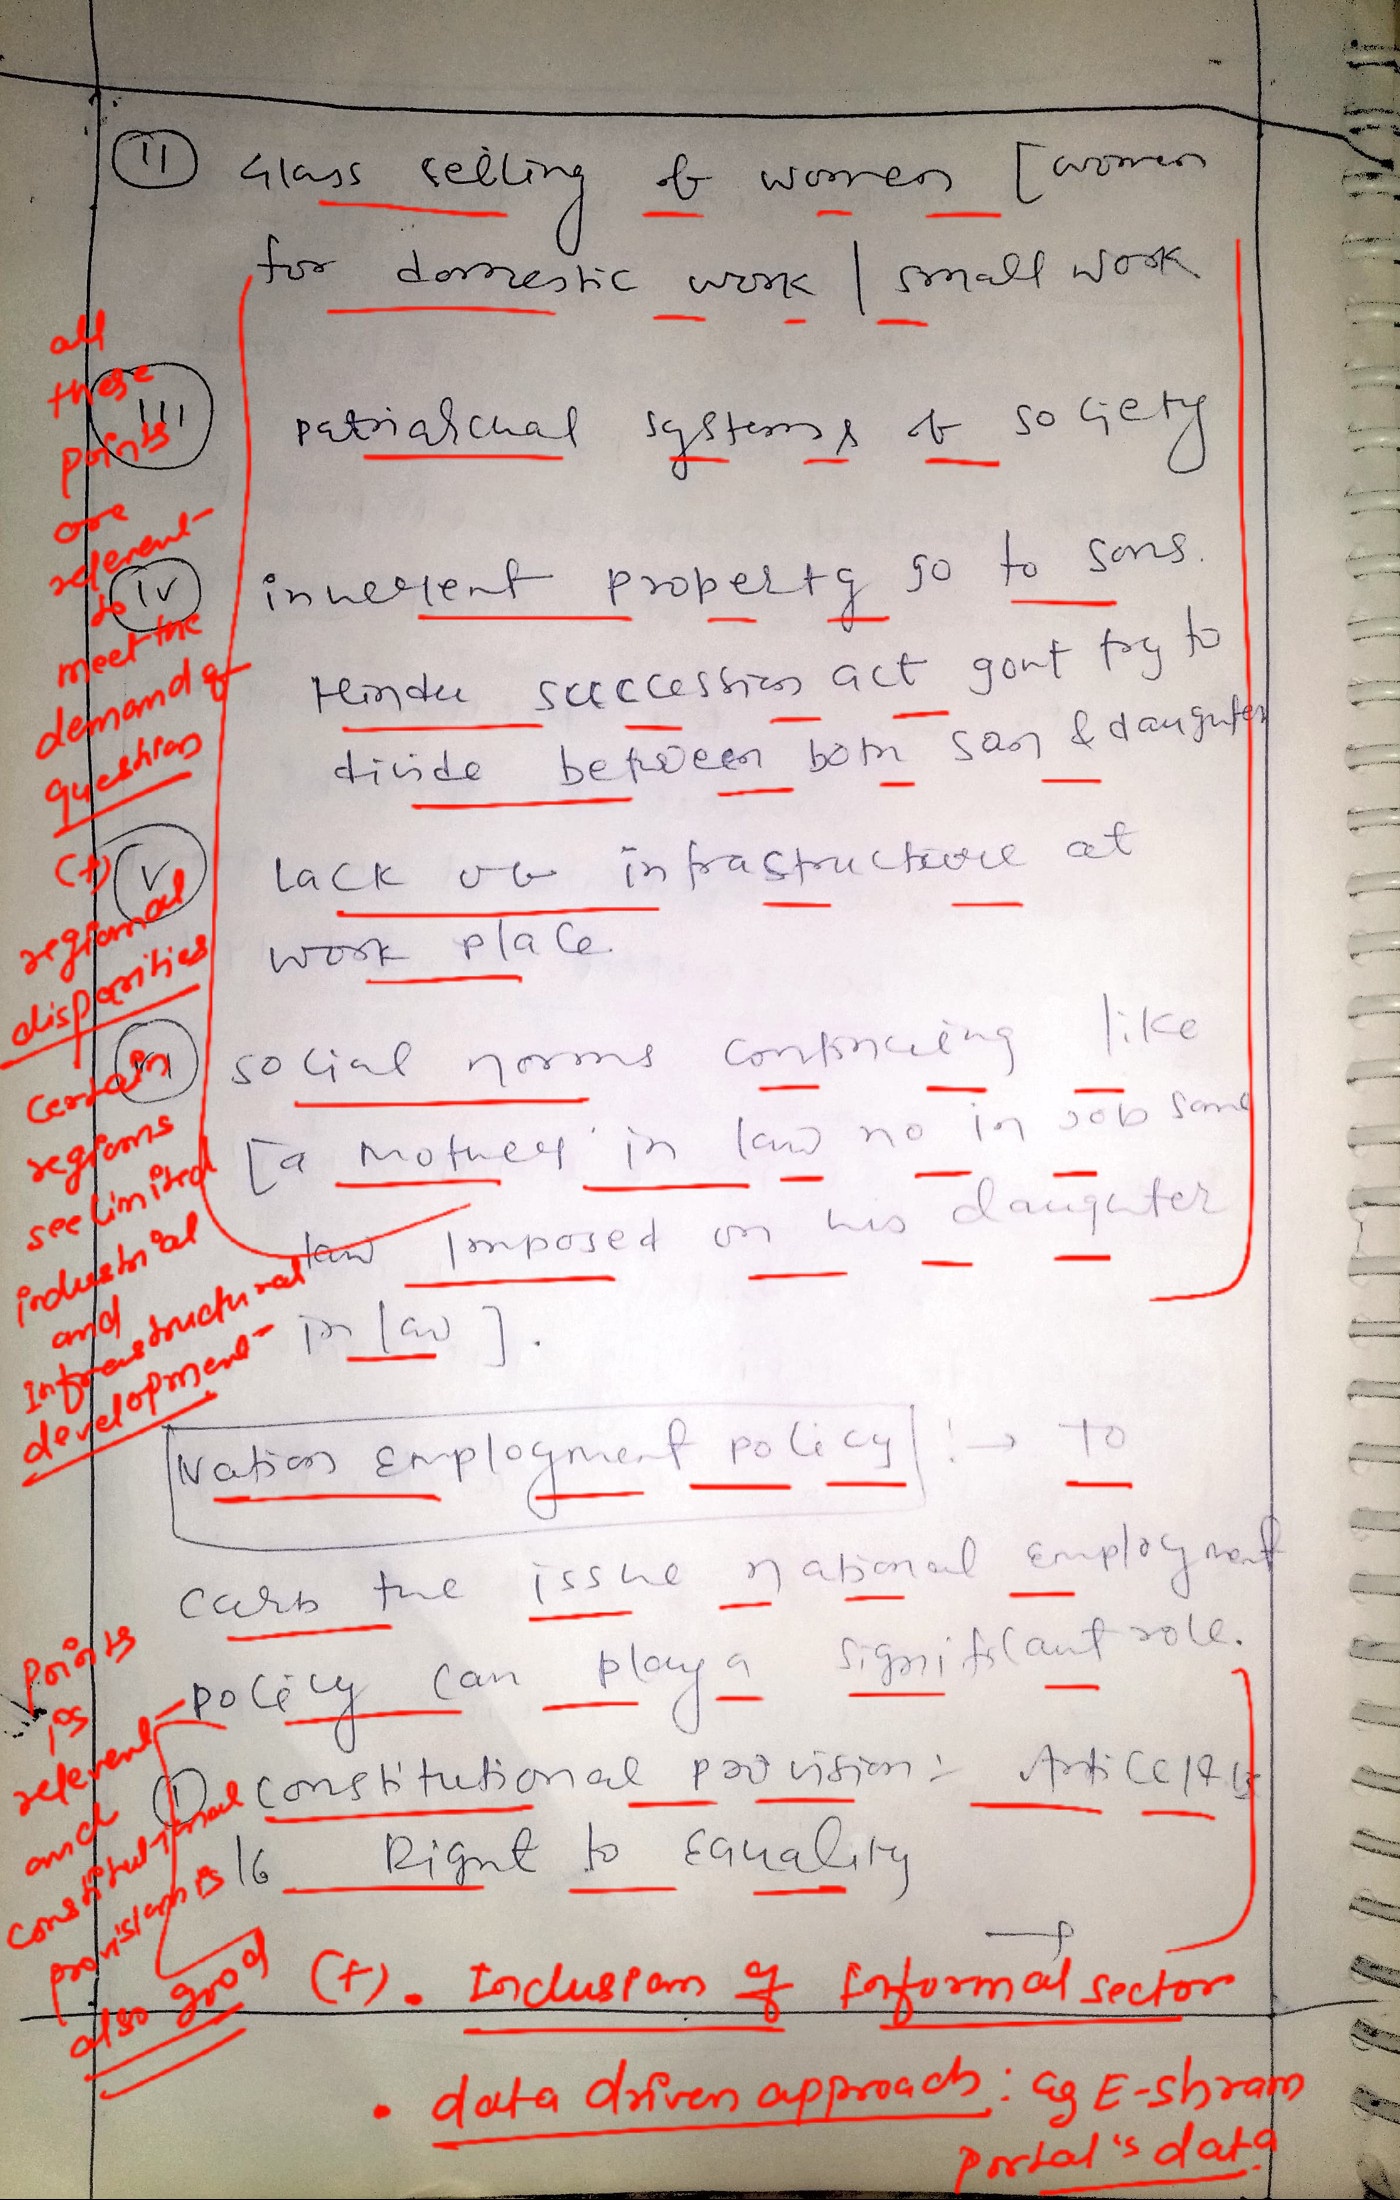 ii Glass selling of women [women
for domestic work | small work
iii patriarchal systems of society
iv inherent property go to sons.
Hindu succession act govt try to
divide between both son & daughter
v Lack of infrastructure at
work place.
social norms continueing like
[a mother in law no in job same
law Imposed on his daughter
in law].
Nation Employment policy :→ To
carb the issue national employment
policy can play a significant role.
i constitutional provision:- Article 14 15
16 Right to Equality
all
these
points
are
relevent
to
meet the
demand of
question
(+)
regional
disparities
certain
regions
see limited
industrial
and
Infrastructural
development
Points
is
relevent
and
constitutional
provisions is
also good
(+). Inclusion of Informal sector
• data driven approach: eg E-shram
Portal's data.